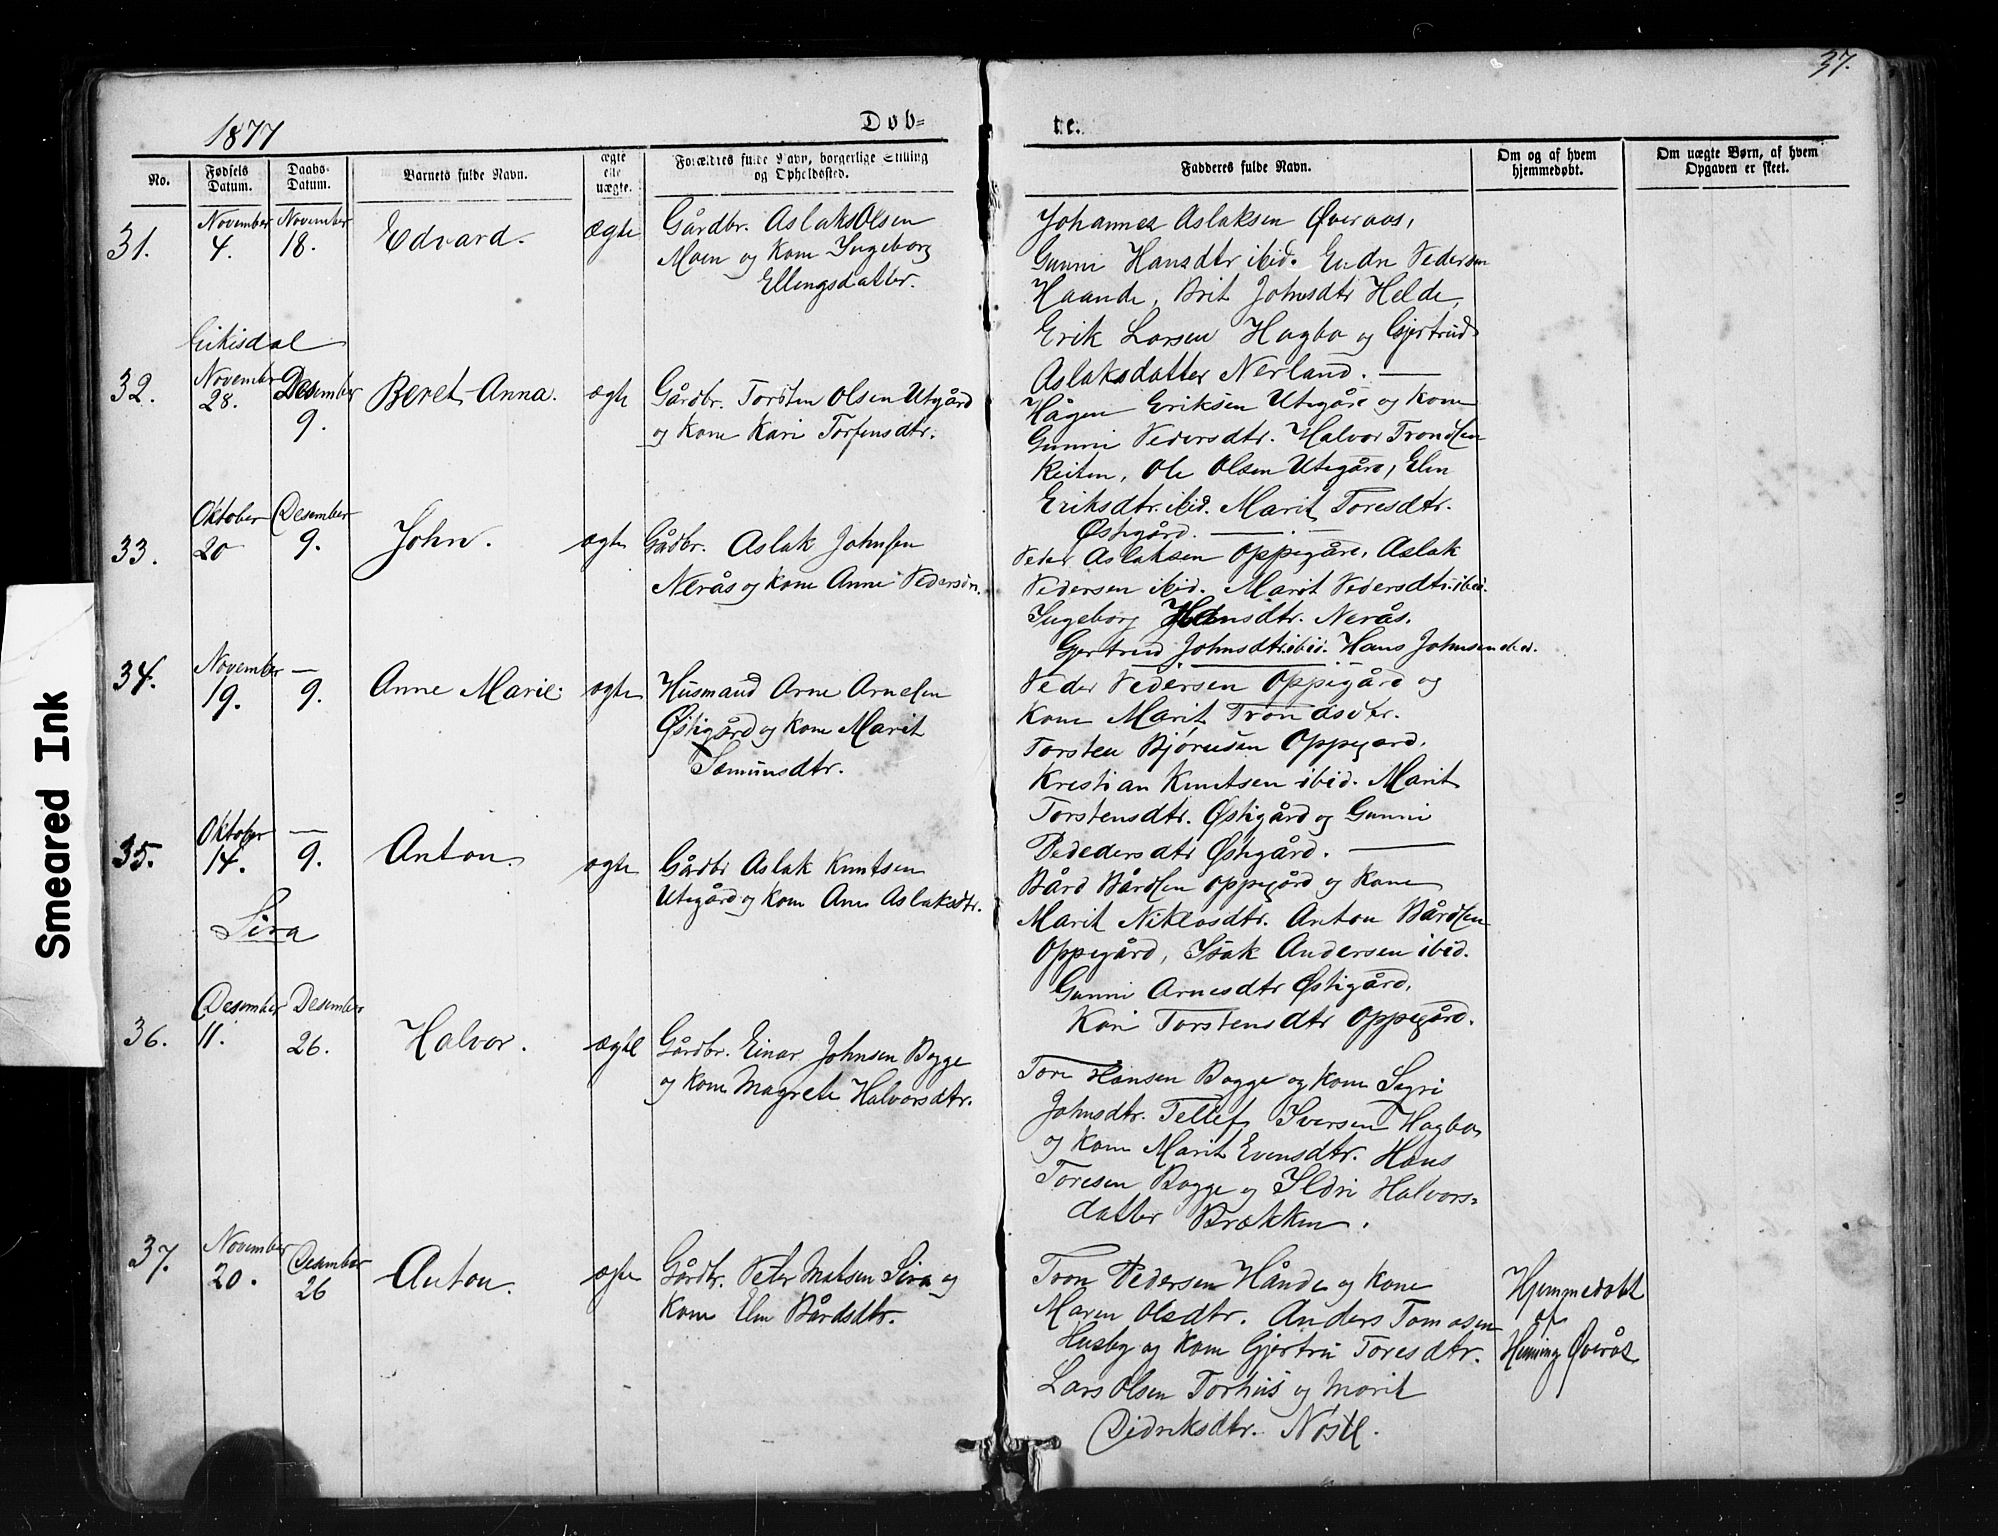 37.
1877
Døb-
te.
No.
Fødsels Datum.
Daabs-Datum.
Barnets fulde Navn.
ægte elle uægte.
Forældres fulde Navn, borgerlige Stilling og Opholdssted.
Fadderes fulde Navn.
Om og af hvem hjemmedøbt.
Om uægte Børn, af hvem Opgaven er skeet.
31.
November 4.
November 18.
Edvard.
ægte
Gårdbr. Aslak Olsen
Moen og Kone Ingeborg
Ellingsdatter.
Johannes Aslaksen Øveraas,
Gunni Hansdtr ibid. Endre Pedersen
Haande, Brit Johnsdtr Helde,
Erik Larsen Hagbø og Gjertrud
Aslaksdatter Nerland. —
Eikisdal
32.
November 28.
Desember 9.
Beret-Anna.
ægte
Gårdbr. Torsten Olsen Utgård
og Kone Kari Torfensdtr.
Hågen Eriksen Utegåre og Kone
Gunni Pedersdtr. Halvor Trondsen
Reiten, Ole Olsen Utegåre, Elen
Eriksdtr. ibid. Marit Toresdtr.
Østigård. —
33.
Oktober 20
Desember 9.
John.
ægte
Gårdbr. Aslak Johnsen
Nerås og Kone Anne Pedersdtr.
Peder Aslaksen Oppegåre, Aslak
Pedersen ibid. Marit Pedersdtr. ibid.
Ingeborg Hansdtr. Nerås.
Gjertrud Johnsdtr. ibid. Hans Johnsen ibid.
34.
November 19.
— 9.
Anne Marie.
ægte
Husmand Arne Arnesen
Østigård og Kone Marit
Samunsdtr.
Peder Pedersen Oppigård og
Kone Marit Trondsdtr.
Torsten Bjørnsen Oppegård.
Krestian Knutsen ibid. Marit
Torstensdtr. Østigård og Gunni
Pededersdtr Østigård. —
35.
Oktober 14.
— 9.
Anton.
ægte
Gårdbr Aslak Knutsen
Utegård og Kone Ane Aslaksdtr.
Bård Bårdsen Oppegård og Kone
Marit Niklosdtr. Anton Bårdsen
Oppegård, Isak Andersen ibid.
Gunni Arnesdtr Østigård.
Kari Torstensdtr Oppegård.
Sira
36.
Desember 11.
Desember 26.
Halvor.
ægte
Gårdbr. Einar Johnsen Bogge
og Kone Magrete Halvorsdtr.
Tore Hansen Bogge og Kone Sigri
Johnsdtr. Tellef Iversen Hagbø
og Kone Marit Evensdtr. Hans
Toresen Bogge og Ildri Halvors-
datter Brækken.
37.
November 20.
Desember 26
Anton.
ægte
Gårdbr. Peter Matsen Sira og
Kone Elen Bårdsdtr.
Tron Pedersen Hånde og Kone
Maren Olsdtr. Anders Tomasen
Husby og Kone Gjertru Toresdtr.
Lars Olsen Torhus og Marit
Didriksdtr. Nøste.
Hjemmedøbt
af
Henning Øverås
Smeared Ink